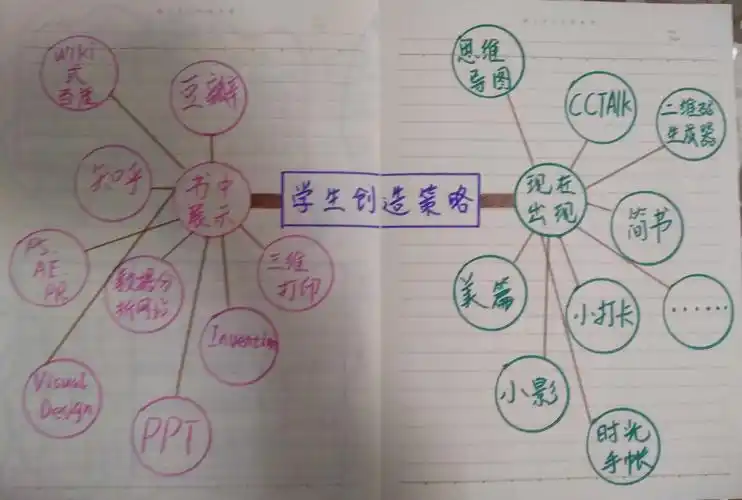 学生创造策略
书中
展示
wiki
式
百度
豆瓣
知乎
PS
AE
PR
数据分
析网站
三维
打印
Invention
Visual
Design
PPT
现在
出现
思维
导图
CCTAlk
二维码
生成器
简书
......
小打卡
美篇
小影
时光
手帐